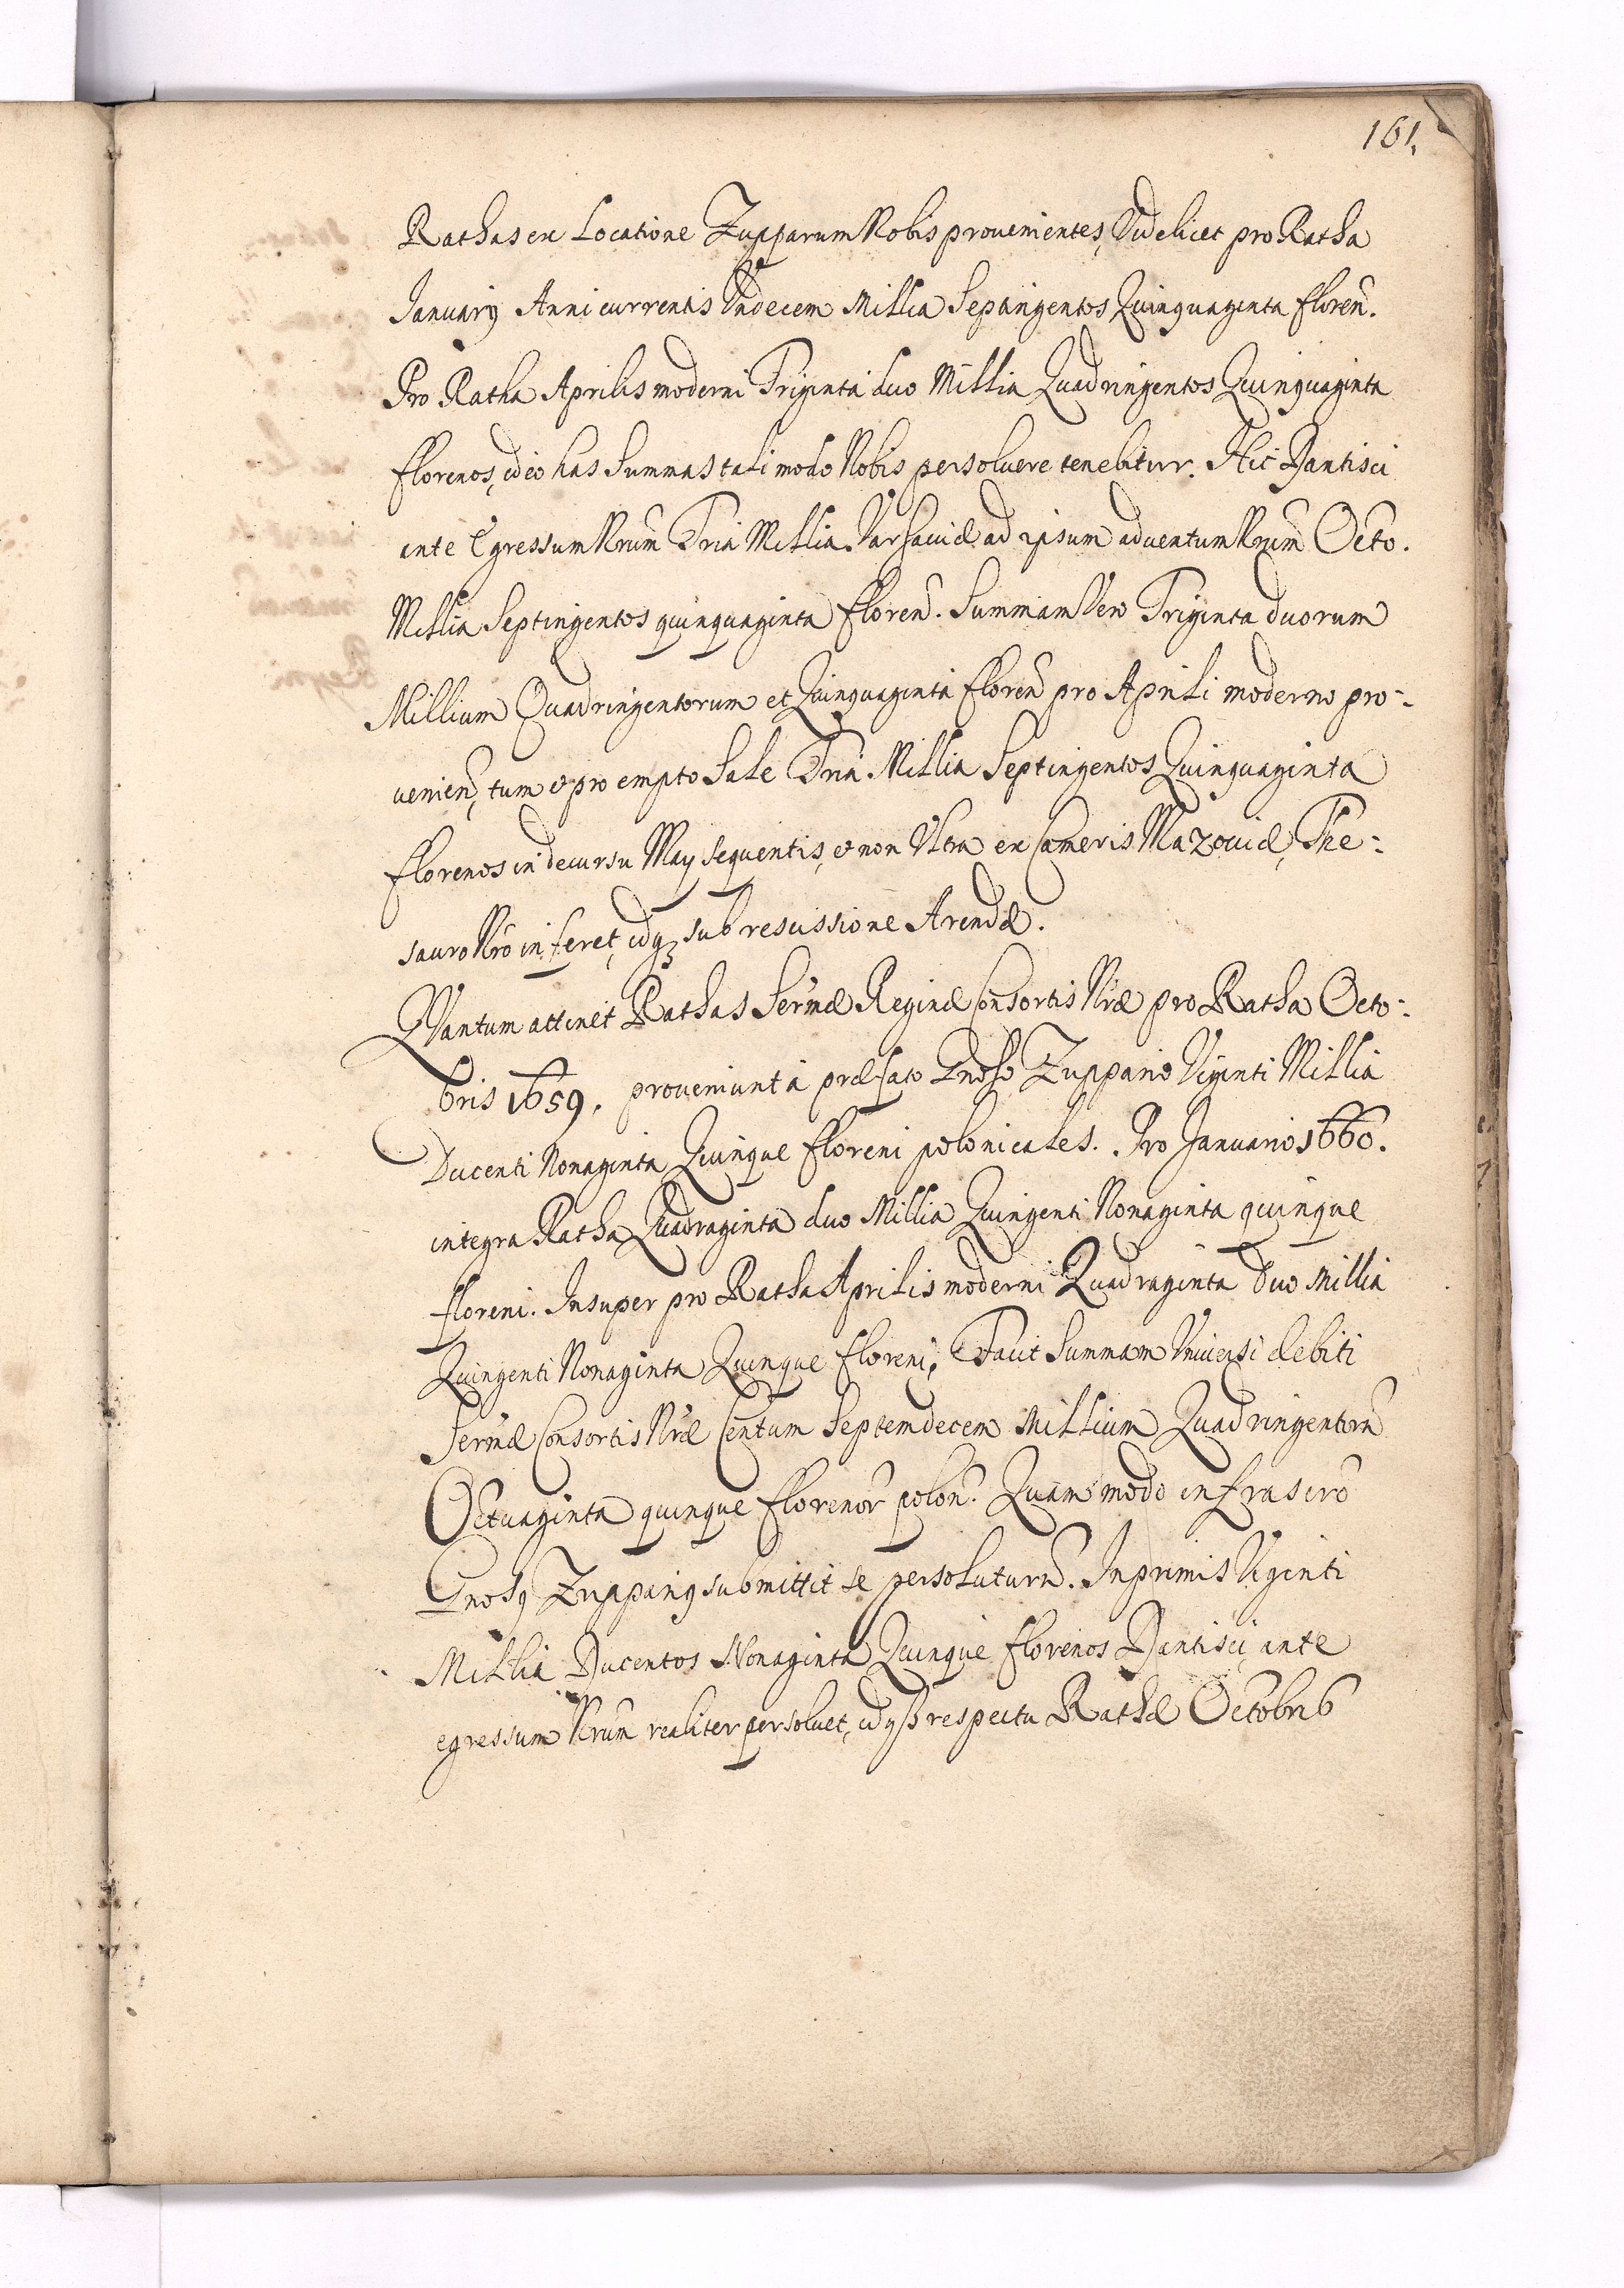 161.
Rathas ex Locatione Zupparum Nobis prouenientes, Videlicet pro Ratha
Januarij Anni currentis Vndecem Millia Septingentos Quinquaginta floreñ.
Pro Ratha Aprilis moderni Triginta duo Millia Quadringentos Quinquaginta
florenos, ideo has Summas tali modo Nobis persoluere tenebitur. Hic Dantisci
ante Egressum Nrũm Tria Millia. Varsauiæ ad ipsum aduentum Nrũm Octo.
Millia Septingentos quinquaginta floreñ. Summam Vero Triginta duorum
Millium Quadringentorum et Quinquaginta floreñ pro Aprili moderno pro=
ueniеñ, tum & pro empto Sale Tria Millia Septingentos Quinquaginta
florenos in decursu Maij sequentis, & non Vltra ex Cameris Mazouiæ, The=
sauro Nrõ inferet, idq3 sub rescissione Arendæ.
QVantum attinet Rathas Serm̃æ Reginæ Consortis Nræ pro Ratha Octo=
bris 1659. proueniunt à præfato Gnoso Zuppario Viginti Millia
Ducenti Nonaginta Quinque floreni polonicales. Pro Januario 1660.
integra Ratha Quadraginta duo Millia Quingenti Nonaginta quinque
floreni. Insuper pro Ratha Aprilis moderni Quadraginta duo Millia
Quingenti Nonaginta Quinque floreni, Facit Summam Vniuersi debiti
Serm̃æ Consortis Nræ Centum Septemdecem Millium Quadringentorũ
Octuaginta quinque florenor̃ polon̄. Quam modo infrascrõ
Gnosg Zupparig submittit se persoluturũ. Inprimis Viginti
Millia Ducentos Nonaginta Quinque florenos Dantisci, ante
egressum Nrũm realiter persoluet, idq3 respectu Rathæ Octobris